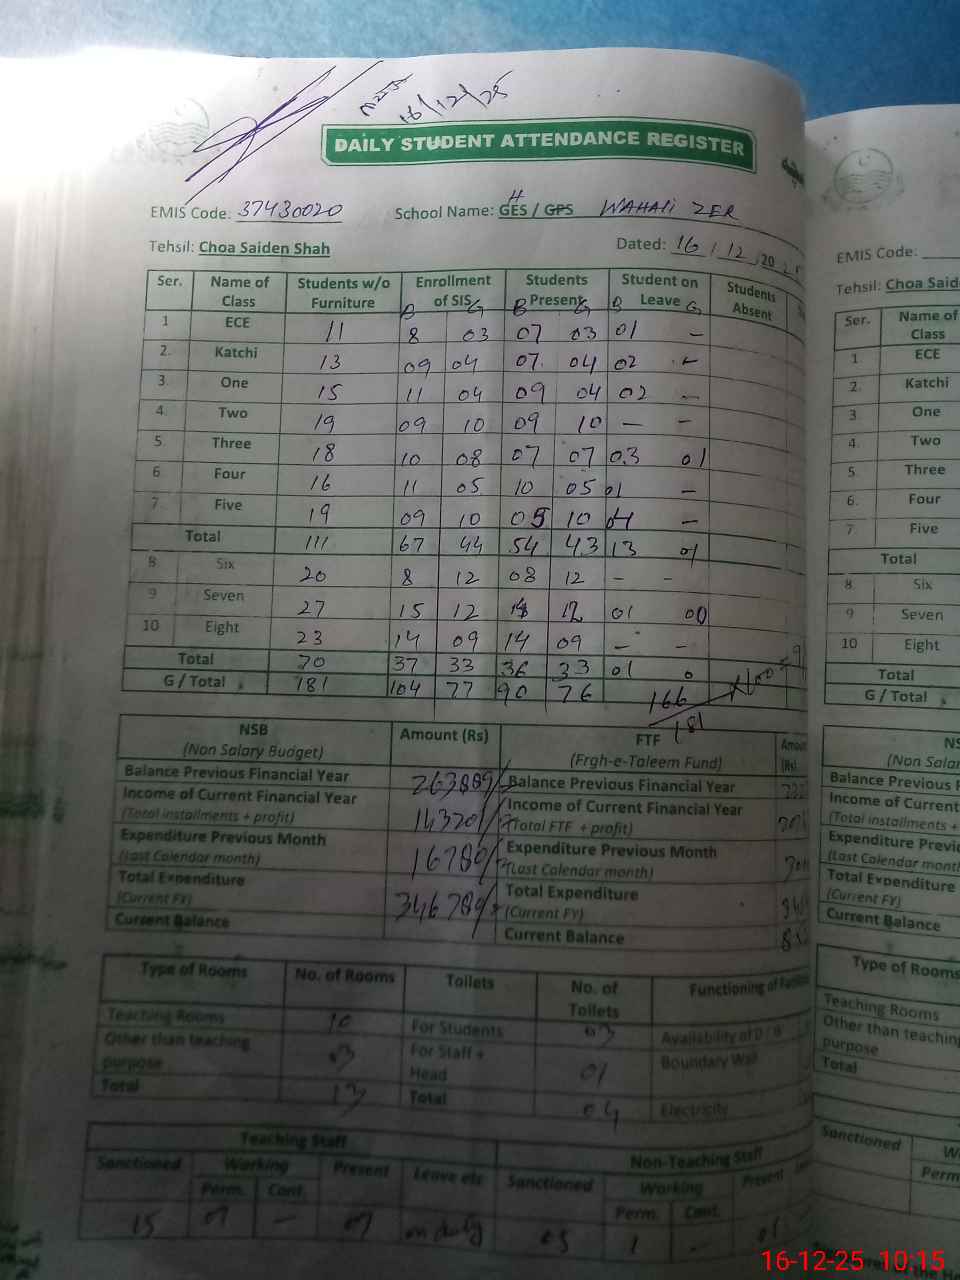 16/12/25
DAILY STUDENT ATTENDANCE REGISTER
EMIS Code: 37430020 School Name: GES / GPS H WAHALI ZER
Tehsil: Choa Saiden Shah Dated: 16 / 12 / 20
Ser. Name of Class Students w/o Furniture Enrollment of SIS Students Present Student on Leave Students Absent
B G B G B G
1 ECE 11 8 03 07 03 01 –
2. Katchi 13 09 04 07 04 02 –
3. One 15 11 04 09 04 02 –
4. Two 19 09 10 09 10 – –
5. Three 18 10 08 07 07 03 01
6. Four 16 11 05 10 05 01 –
7. Five 19 09 10 05 10 04 –
Total 111 67 44 54 43 13 01
8 Six 20 8 12 08 12 – –
9 Seven 27 15 12 14 12 01 00
10 Eight 23 14 09 14 09 – –
Total 70 37 33 36 33 01 0
G / Total 181 104 77 90 76 166/181 x100 = 9
NSB (Non Salary Budget) Amount (Rs) FTF (Frgh-e-Taleem Fund) (Rs)
Balance Previous Financial Year 263889/ Balance Previous Financial Year
Income of Current Financial Year (Total installments + profit) Income of Current Financial Year (Total FTF + profit)
Expenditure Previous Month (Last Calendar month) 16780/ Expenditure Previous Month (Last Calendar month)
Total Expenditure (Current FY) 346789/ Total Expenditure (Current FY)
Current Balance Current Balance
Type of Rooms No. of Rooms Toilets No. of Toilets Functioning of
Teaching Rooms 10 For Students 03 Availability of
Other than teaching purpose 03 For Staff + Head 01 Boundary Wall
Total 13 Total 04 Electricity
Teaching Staff Non-Teaching Staff
Sanctioned Working Present Leave etc Sanctioned Working Present
Perm. Cont. Perm. Cont.
15 07 – 07 on duty 05 1 – 01
EMIS Code:
Tehsil: Choa Said
Ser. Name of Class
1 ECE
2. Katchi
3 One
4. Two
5. Three
6. Four
7 Five
Total
8. Six
9 Seven
10 Eight
Total
G / Total
NS
(Non Salar
Balance Previous F
Income of Current
(Total installments +
Expenditure Previ
(Last Calendar month
Total Expenditure
(Current FY)
Current Balance
Type of Rooms
Teaching Rooms
Other than teaching
purpose
Total
Sanctioned
Perm
16-12-25 10:15